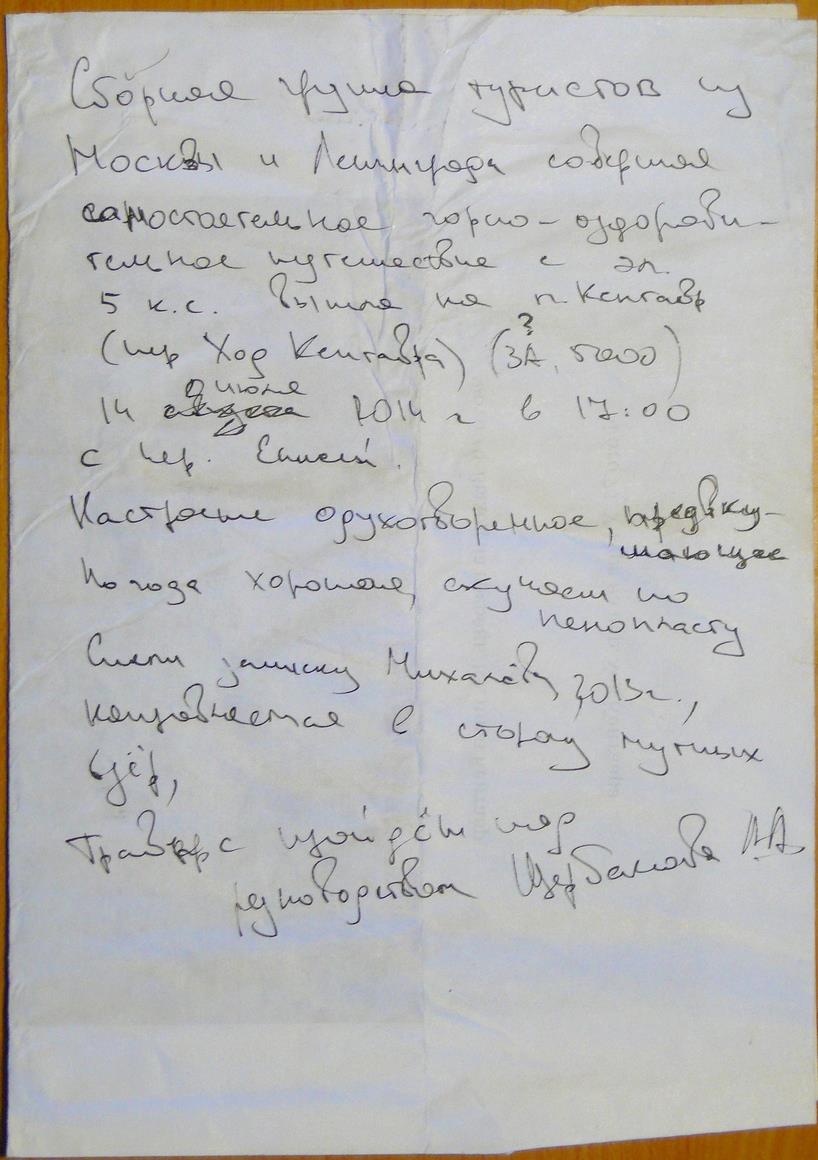 Сборная группа туристов из
Москвы и Ленинграда совершая
самостоятельное горно-оздорови-
тельное путешествие с эл.
5 к.с. вышла на п. Кентавр
(пер Ход Кентавра) (3А, 5000)
?
июля
14 2014 г в 17:00
с пер. Енисей.
Настроение одухотворенное, предвку-
шающее
Погода хорошая, скучаем по
пенопласту
Сняли записку Михалёву 2013г.,
направляемся в сторону мутных
озёр,
Траверс пройдём под
руководством Щербакова А.А.